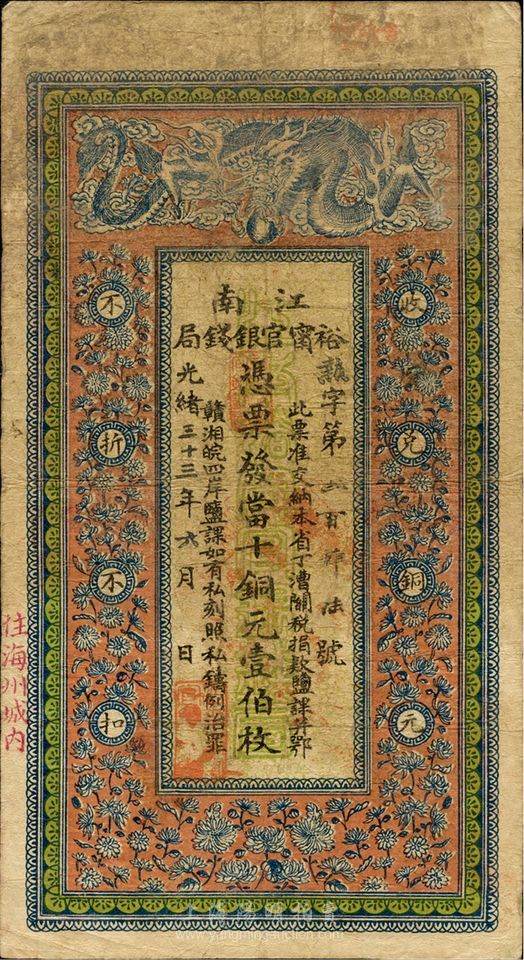 江南
裕甯官銀錢局
字第 百 號
此票准交納本省丁漕關稅捐款鹽課並鄂
憑票發當十銅元壹伯枚
贛湘皖四岸鹽課如有私刻照私鑄例治罪
光緒三十三年六月 日
收兌銅元
不折不扣
住海州城内
www.yangmingauction.com